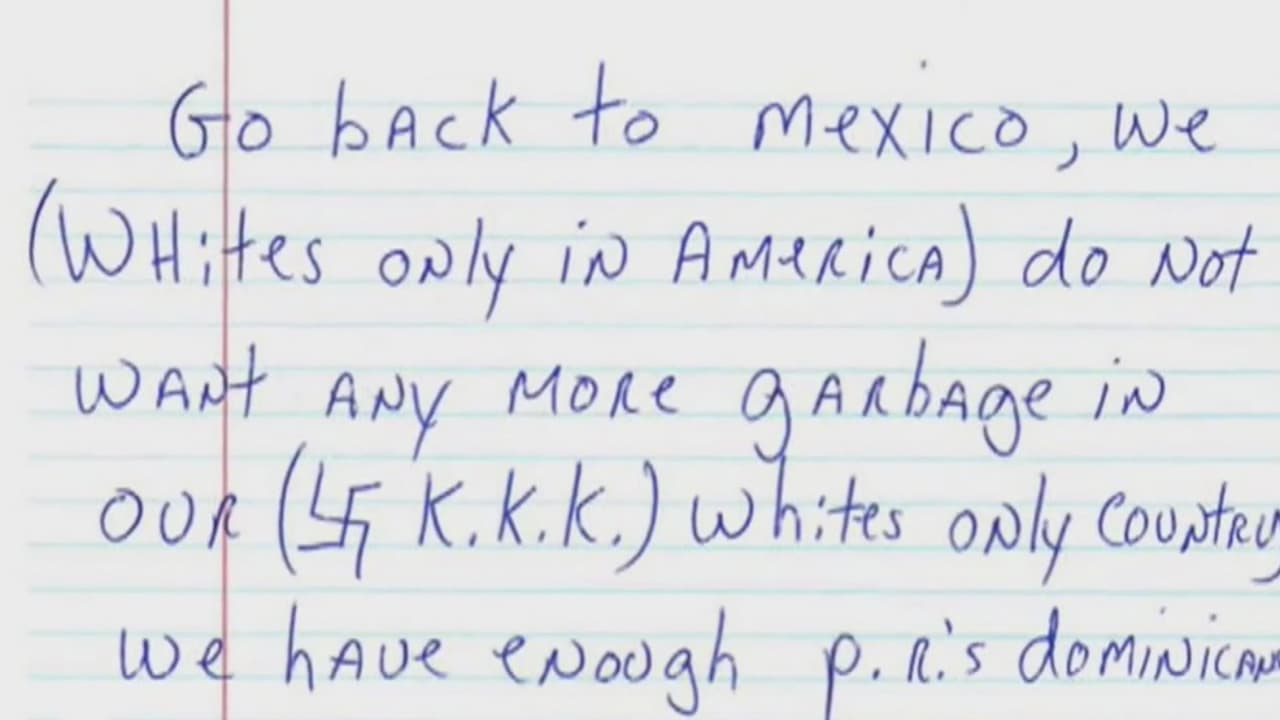 Go back to Mexico, we
(Whites only in America) do not
want any more garbage in
our (卐 K.K.K.) whites only country
we have enough p.R.'s dominican